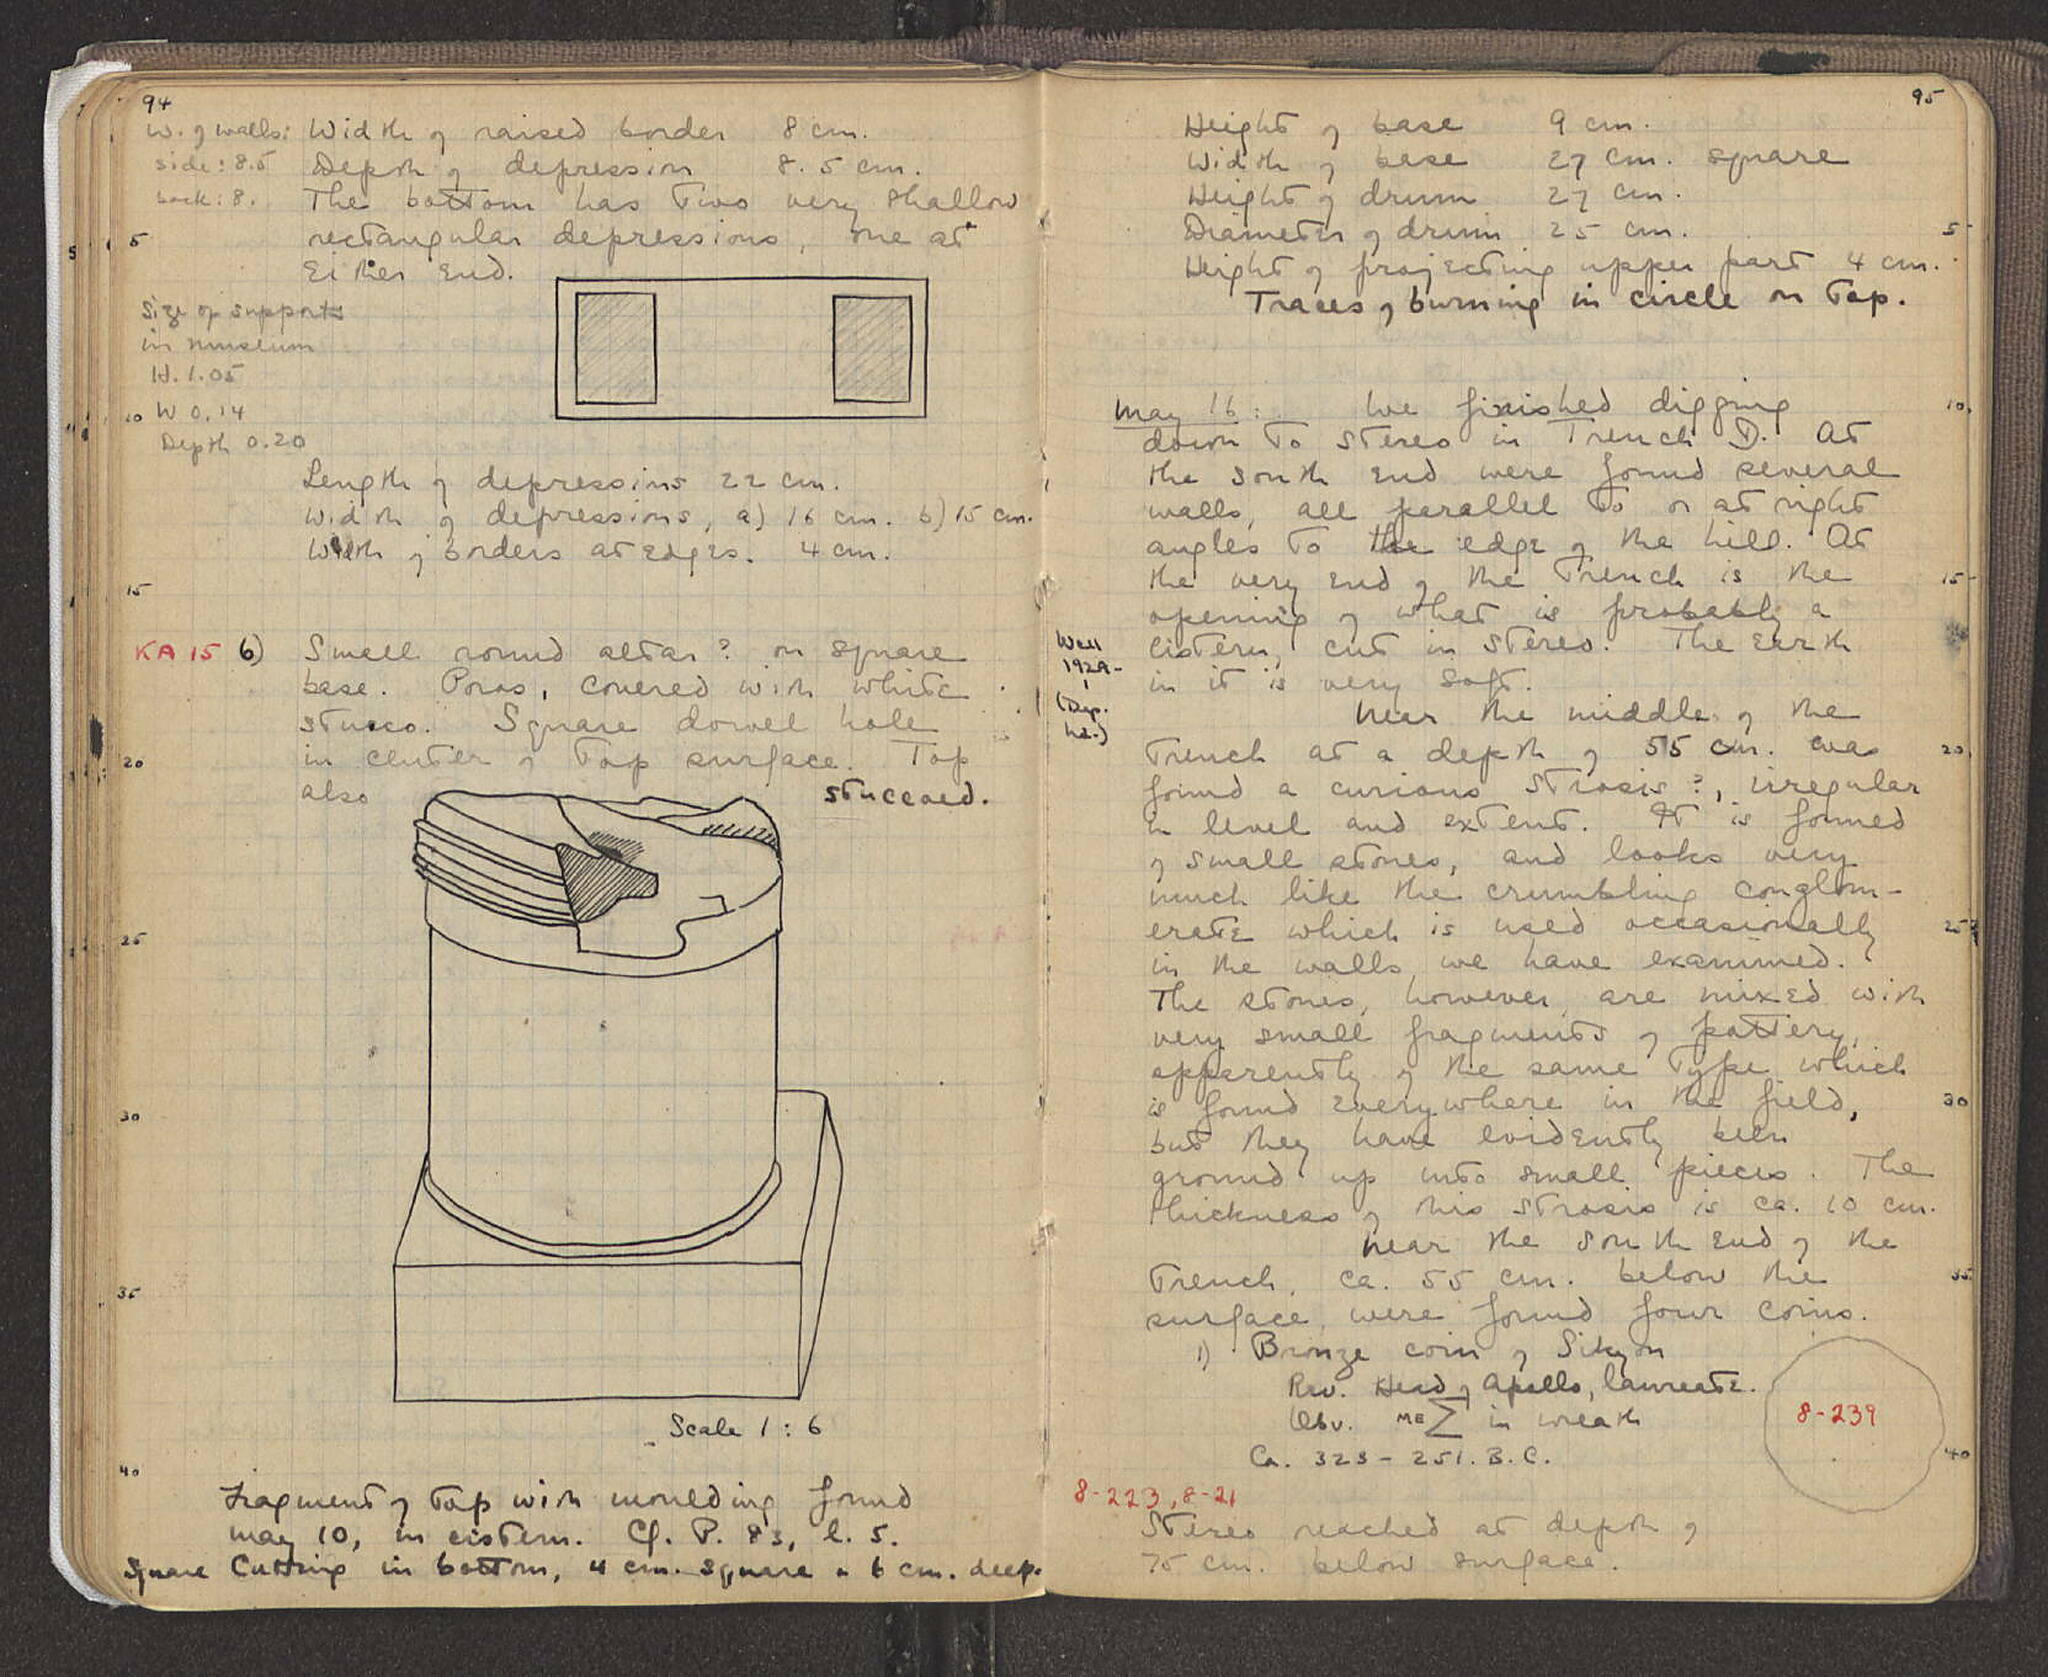 94
W. of walls:
side: 8.5
back: 8.
Width of raised border 8 cm.
Depth of depression 8.5 cm.
The bottom has two very shallow
rectangular depressions, one at
either end.
Size of supports
in museum
H. 1.05
W 0.14
Depth 0.20
Length of depressions 22 cm.
Width of depressions, a) 16 cm. b) 15 cm.
Width of borders at edges. 4 cm.
KA 15 6) Small round altar? on square
base. Poros, covered with white
stucco. Square dowel hole
in center of top surface. Top
also stuccoed.
Scale 1:6
Fragment of top with moulding found
May 10, in cistern. Cf. P. 83, l. 5.
Square Cutting in bottom, 4 cm. square 6 cm. deep.
5
10
15
20
25
30
35
40
95
Height of base 9 cm.
Width of base 27 cm. square
Height of drum 27 cm.
Diameter of drum 25 cm.
Height of projecting upper part 4 cm.
Traces of burning in circle on top.
May 16: We finished digging
down to stereo in Trench D. At
the south end were found several
walls, all parallel to or at right
angles to the edge of the hill. At
the very end of the trench is the
opening of what is probably a
cistern, cut in stereo. The earth
in it is very soft.
Well
(Dep.
Near the middle of the
trench at a depth of 55 cm. was
found a curious strosis?, irregular
in level and extent. It is formed
of small stones, and looks very
much like the crumbling conglom-
erate which is used occasionally
in the walls we have examined.
The stones, however, are mixed with
very small fragments of pottery,
apparently of the same type which
is found everywhere in the field,
but they have evidently been
ground up into small pieces. The
thickness of this strosis is ca. 10 cm.
Near the south end of the
trench, ca. 55 cm. below the
surface, were found four coins.
1) Bronze coin of Sikyon
Rev. Head of Apollo, laureate.
Obv. ME Σ in wreath
Ca. 323 - 251. B.C.
8-239
8-223, 8-21
Stereo reached at depth of
75 cm. below surface.
5
10
15
20
25
30
35
40